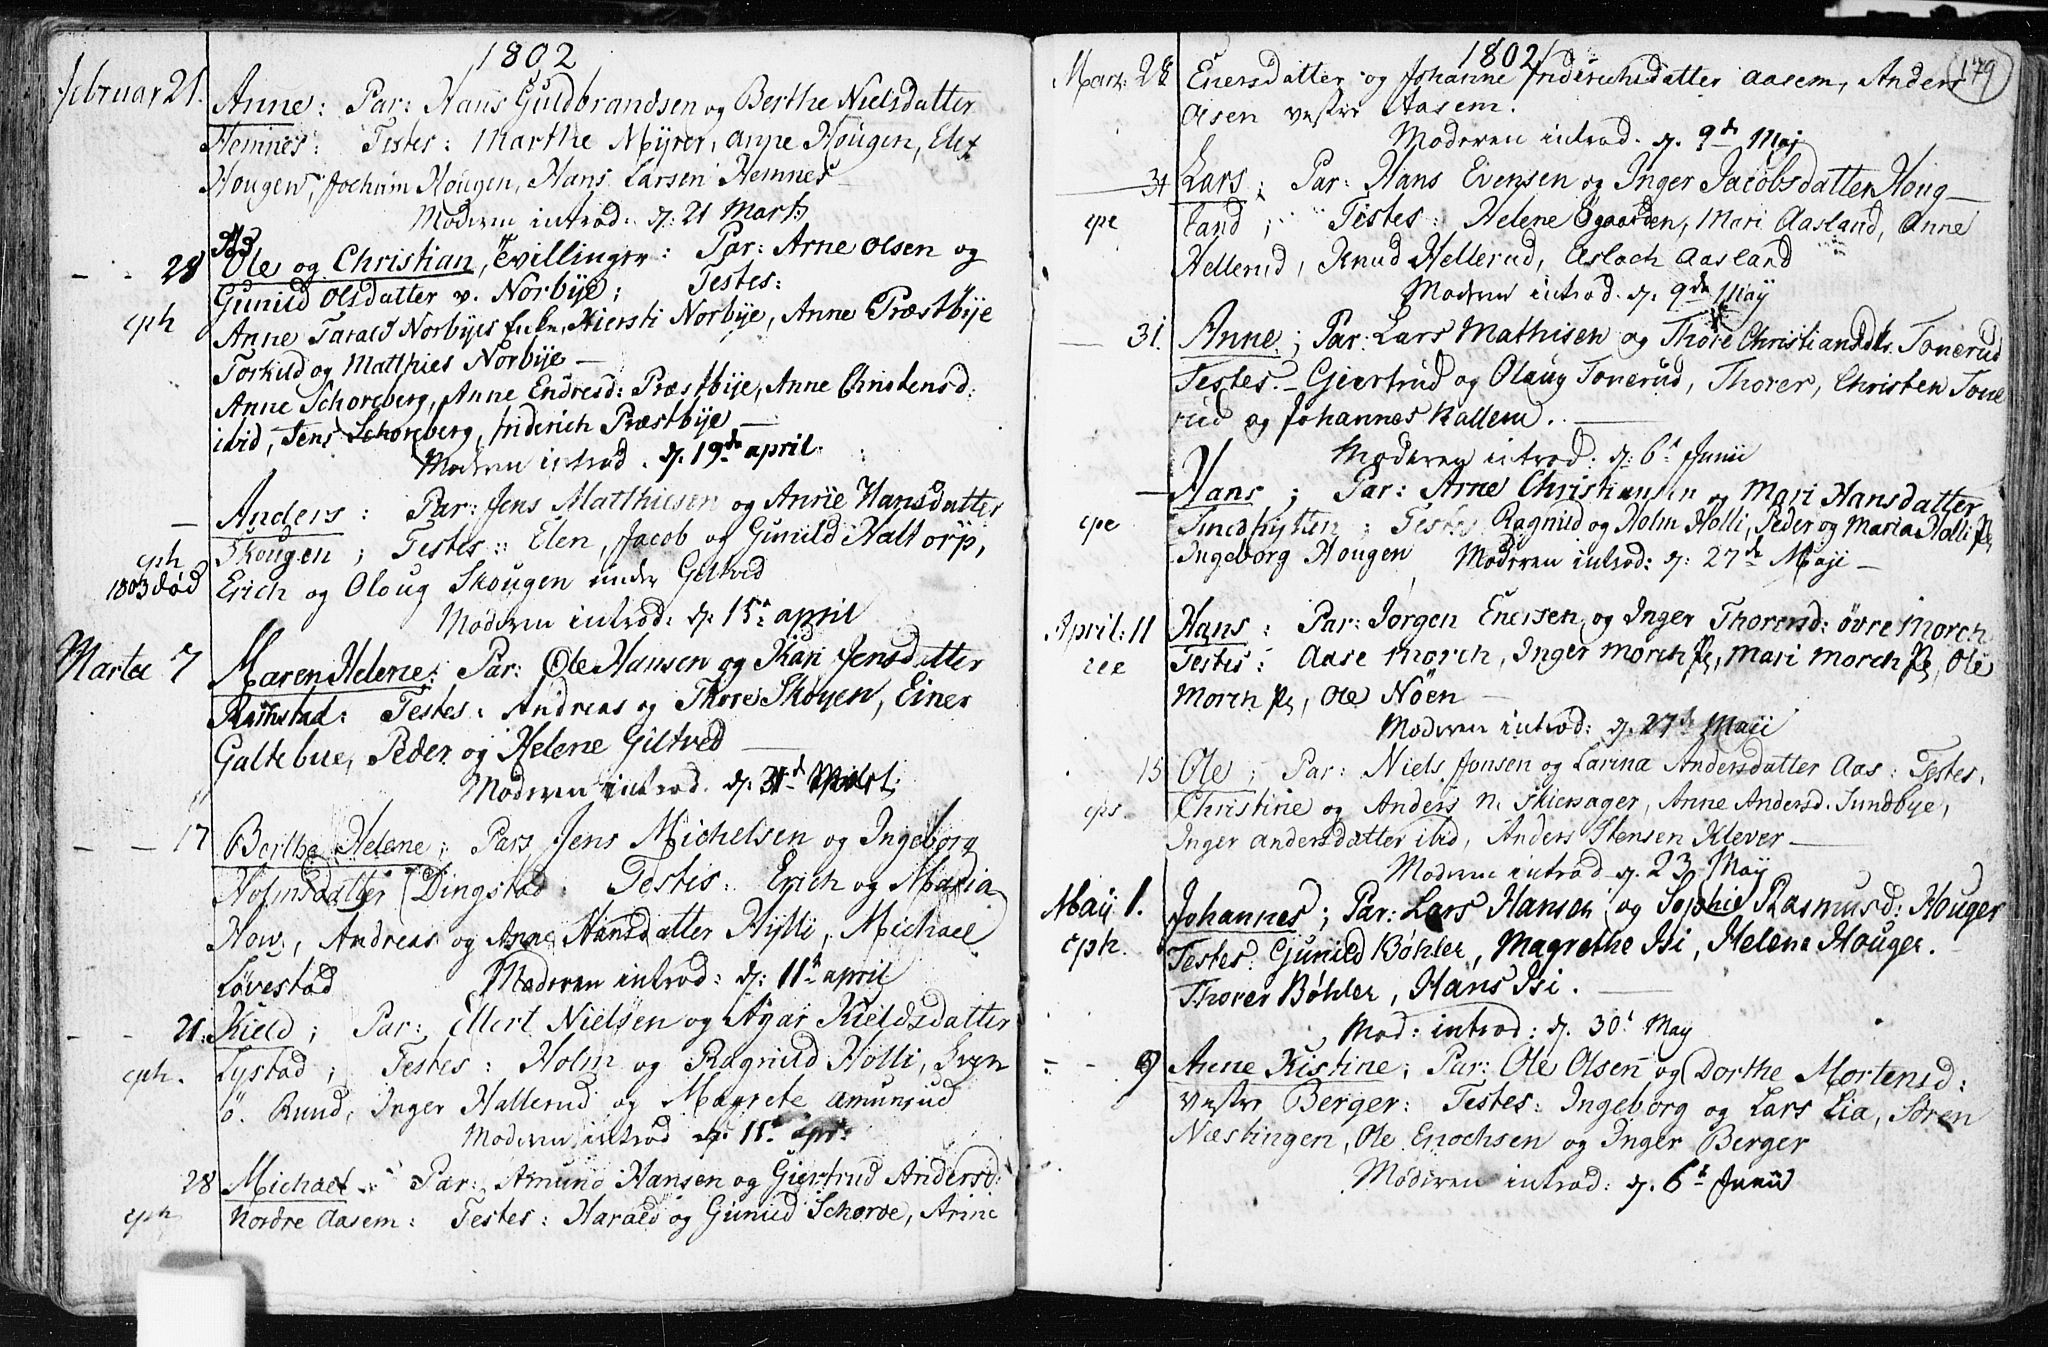 1802
Februar 21. Anne: Par: Hans Guldbrandsen og Berthe Nielsdatter
Hemnes: Testes: Marthe Myrer, Anne Hougen, Elef
Hougen, Jochum Hougen, Hans Larsen Hemnes
Moderen introd. d. 21 Marts
- - 28 Ole og Christian, Tvillinger: Par: Arne Olsen og
Gunild Olsdatter v. Norbÿe; Testes:
cph Anne Tarald Norbÿes Enke, Kiersti Norbÿe, Anne Præstbÿe
Torkild og Matthies Norbÿe —
Anne Schoreberg, Anne Endresd: Præstbÿe, Anne Christensd:
ibid, Jens Schoreberg, Friderich Præstbÿe —
Moderen introd. d. 19de april.
— Anders: Par: Jens Matthiesen og Anne Hansdatter
cph Skougen; Testes: Elen, Jacob og Gunild Haltorp,
1803 død Erich og Oloug Skougen under Giltved
Moderen introd: d. 15t april
Martii 7 Maren Helene: Par: Ole Hansen og Kari Jensdatter
Ramstad: Testes: Andreas og Thore Skoyen, Einer
Galtebue, Peder og Helene Giltved —
Moderen introd. d. 31d Mart.
- - 17 Berthe Helene; Pars Jens Michelsen og Ingeborg
Holmsdatter Dingstad: Testis: Erich og Maria
How, Andreas og Anne Hansdatter Hylli, Michael
Løvestad Moderen introd: d: 11t april
- - 21. Kield; Par: Ellert Nielsen og Agar Kieldsdatter
cph. Lystad; Testes: Holm og Ragnild Holli, Even
ö. Ruud, Inger Hallerud og Magrete Amunrud
Moderen introd d. 11t apr:
28 Michael: Par: Amund Hansen og Giertrud Andersd:
cph Nordre Aasem: Testes: Harald og Gunild Schorøe, Arine
1802
179
Mart: 28 Enersdatter og Johanne Friderichsdatter Aasem, Anders
Olsen vestre Aasem.
Moderen introd. d. 9de Maj
— 31 Lars; Par: Hans Evensen og Inger Jacobsdatter Houg-
cpe land; Testes: Helene Ögaarden, Mari Aasland, Anne
Hellerud, Knud Hellerud, Asloch Aasland
Moderen introd. d. 9de May
— 31. Anne; Par: Lars Mathisen og Thore Christiansdtr. Tonerud
Testes. - Giertrud og Oloug Tonerud, Thorer, Christen Tone
rud og Johannes Kallem. —
Moderen introd: d: 6t Junii
— Hans; Par: Arne Christiansen og Mari Hansdatter
cpe Testes Ragnild og Holm Holli, Peder og Maria Holli Pl,
Ingeborg Hougen Moderen introd: d: 27de Maji —
April: 11 Hans: Par: Jørgen Enersen og Inger Thorersd: övre Morch
Testes: Aase Morch, Inger Morch Pl, Mari Morch Pl, Ole
Morch Pl, Ole Nöen —
Moderen introd: d. 27de Maii
15 Ole; Par: Niels Jonsen og Larina Andersdatter Aas: Testes.
cps. Christine og Anders n. Skiersager, Anne Andersd. Sundbye,
Inger Andersdatter ibid, Anders Stensen Klever —
Moderen introd d. 23 May
Maÿ 1. Johannes; Par: Lars Hansen og Sophie Rasmusd: Houger
cph. Testes: Gunild Bøhler, Magrethe Isi, Helene Houger.
Thorer Bøhler, Hans Isi. —
Mod: introd: d. 30t May
- - 9 Anne Kistine; Par: Ole Olsen og Dorthe Mortensd:
vestre Berger: Testes: Ingeborg og Lars Lia, Søren
Næstingen, Ole Enochsen og Inger Berger
Moderen introd: d. 6t Junii